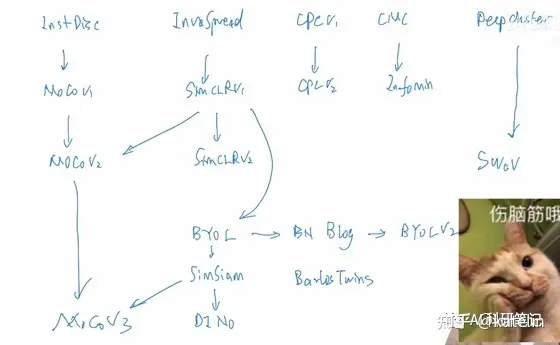 InstDisc InvaSpread CPCV1 CMC DeepCluster
MoCoV1 SimCLRV1 CPCV2 Infomin
MOCOV2 SimCLRV2 SWaV
伤脑筋哦
BYOL BN Blog BYOLV2
SimSiam BarlosTwins
MoCoV3 DINO